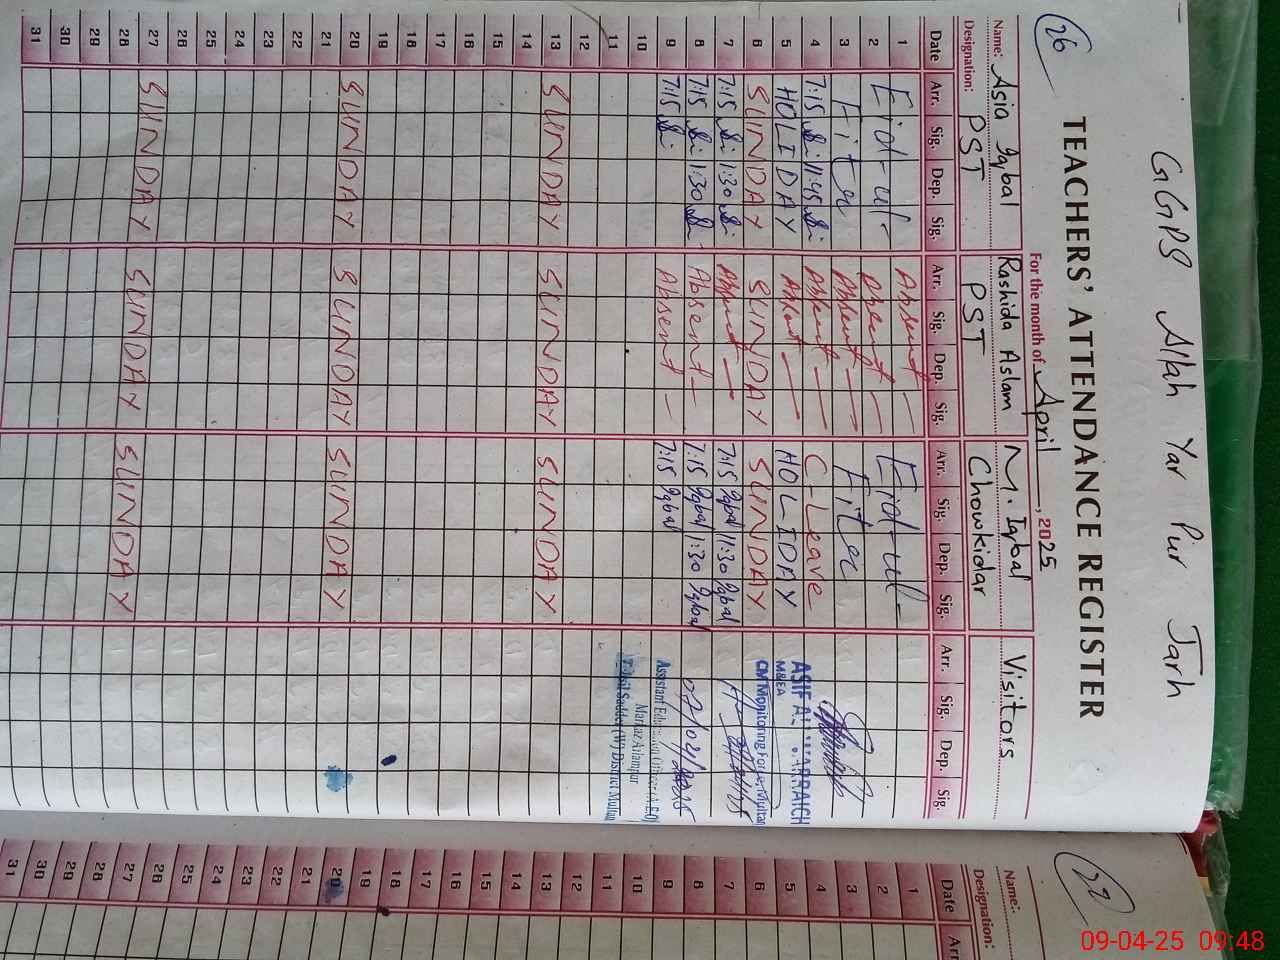 GGPS Allah Yar Pur Jarh
26
TEACHERS' ATTENDANCE REGISTER
For the month of April, 2025
Name: Asia Iqbal Rashida Aslam M. Iqbal Visitors
Designation: PST PST Chowkidar
Date Arr. Sig. Dep. Sig. Arr. Sig. Dep. Sig. Arr. Sig. Dep. Sig. Arr. Sig. Dep. Sig.
1 Eid-ul- Absent Eid-ul-
2 Absent
3 Fiter Absent Fiter
4 7:15 11:45 Absent C-Leave
5 HOLIDAY Absent HOLIDAY
6 SUNDAY SUNDAY SUNDAY
7 7:15 11:30 Absent 7:15 Iqbal 11:30 Iqbal
8 7:15 11:30 Absent 7:15 Iqbal 11:30 Iqbal
9 7:15 Absent 7:15 Iqbal
10
11
12
13 SUNDAY SUNDAY SUNDAY
14
15
16
17
18
19
20 SUNDAY SUNDAY SUNDAY
21
22
23
24
25
26
27 SUNDAY SUNDAY SUNDAY
28
29
30
31
ASIF ALI WARRAICH
M&EA
CM Monitoring Force, Multan
Assistant Education Officer (A.E.O)
Markaz
Tehsil Sadder (W) District Multan
Name:
Designation:
Date Arr
1
2
3
4
5
6
7
8
9
10
11
12
13
14
15
16
17
18
19
20
21
22
23
24
25
26
27
28
29
30
31
09-04-25 09:48